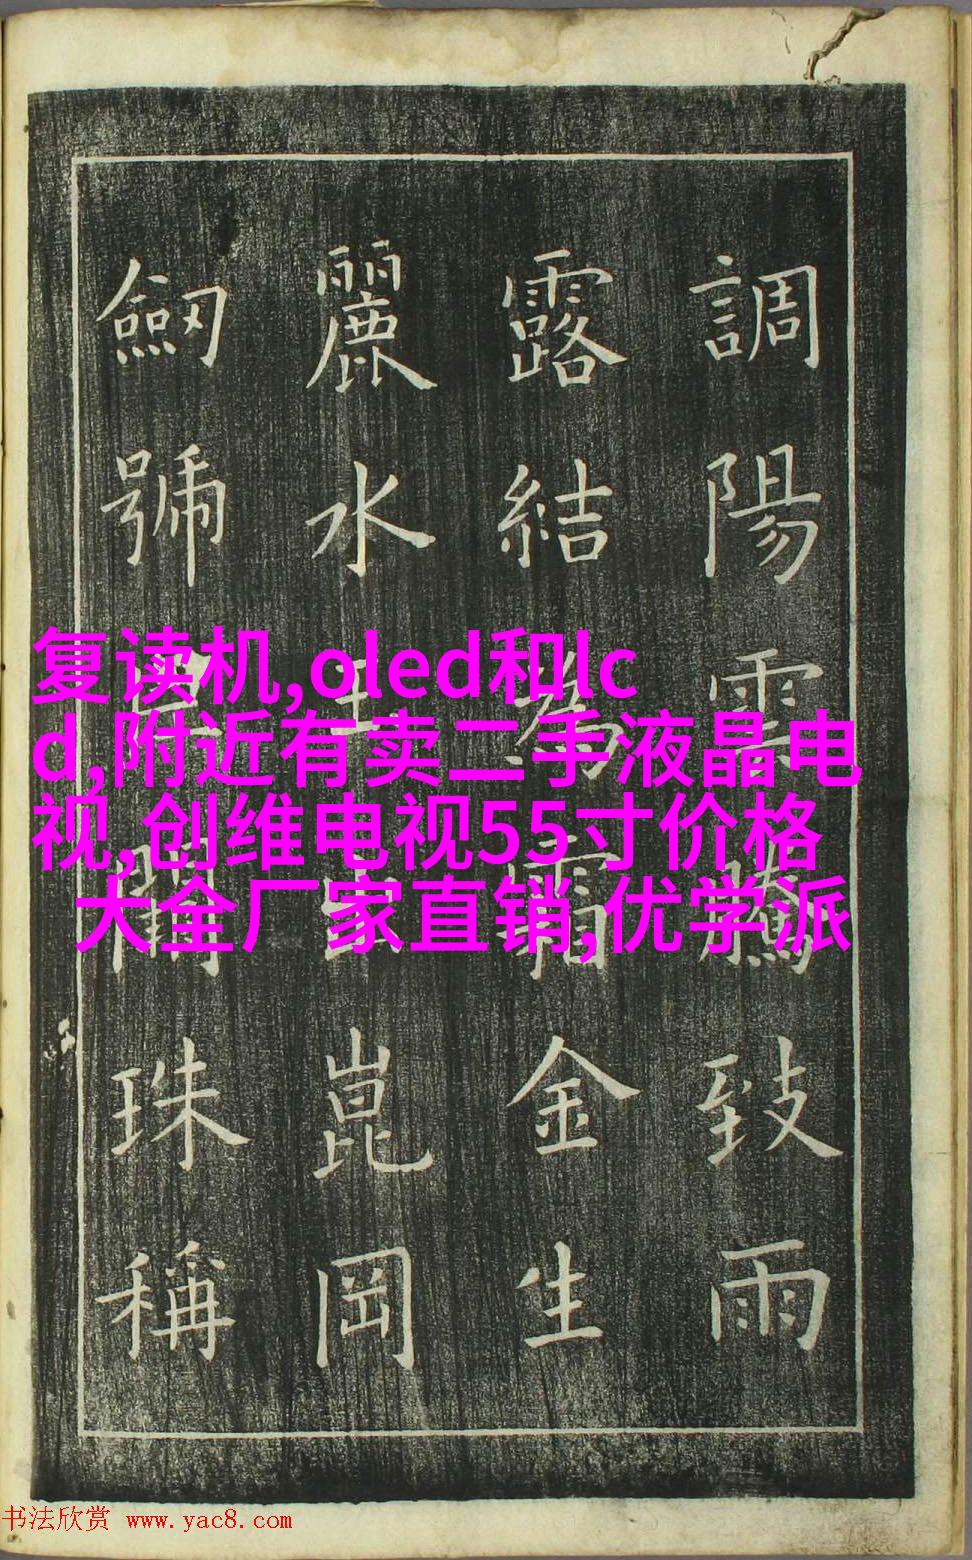 調陽雲騰致雨
露結為霜金生
麗水崑岡
劒號珠稱
复读机,oled和lc
d,附近有卖二手液晶电
视,创维电视55寸价格
大全厂家直销,优学派
书法欣赏 www.yac8.com